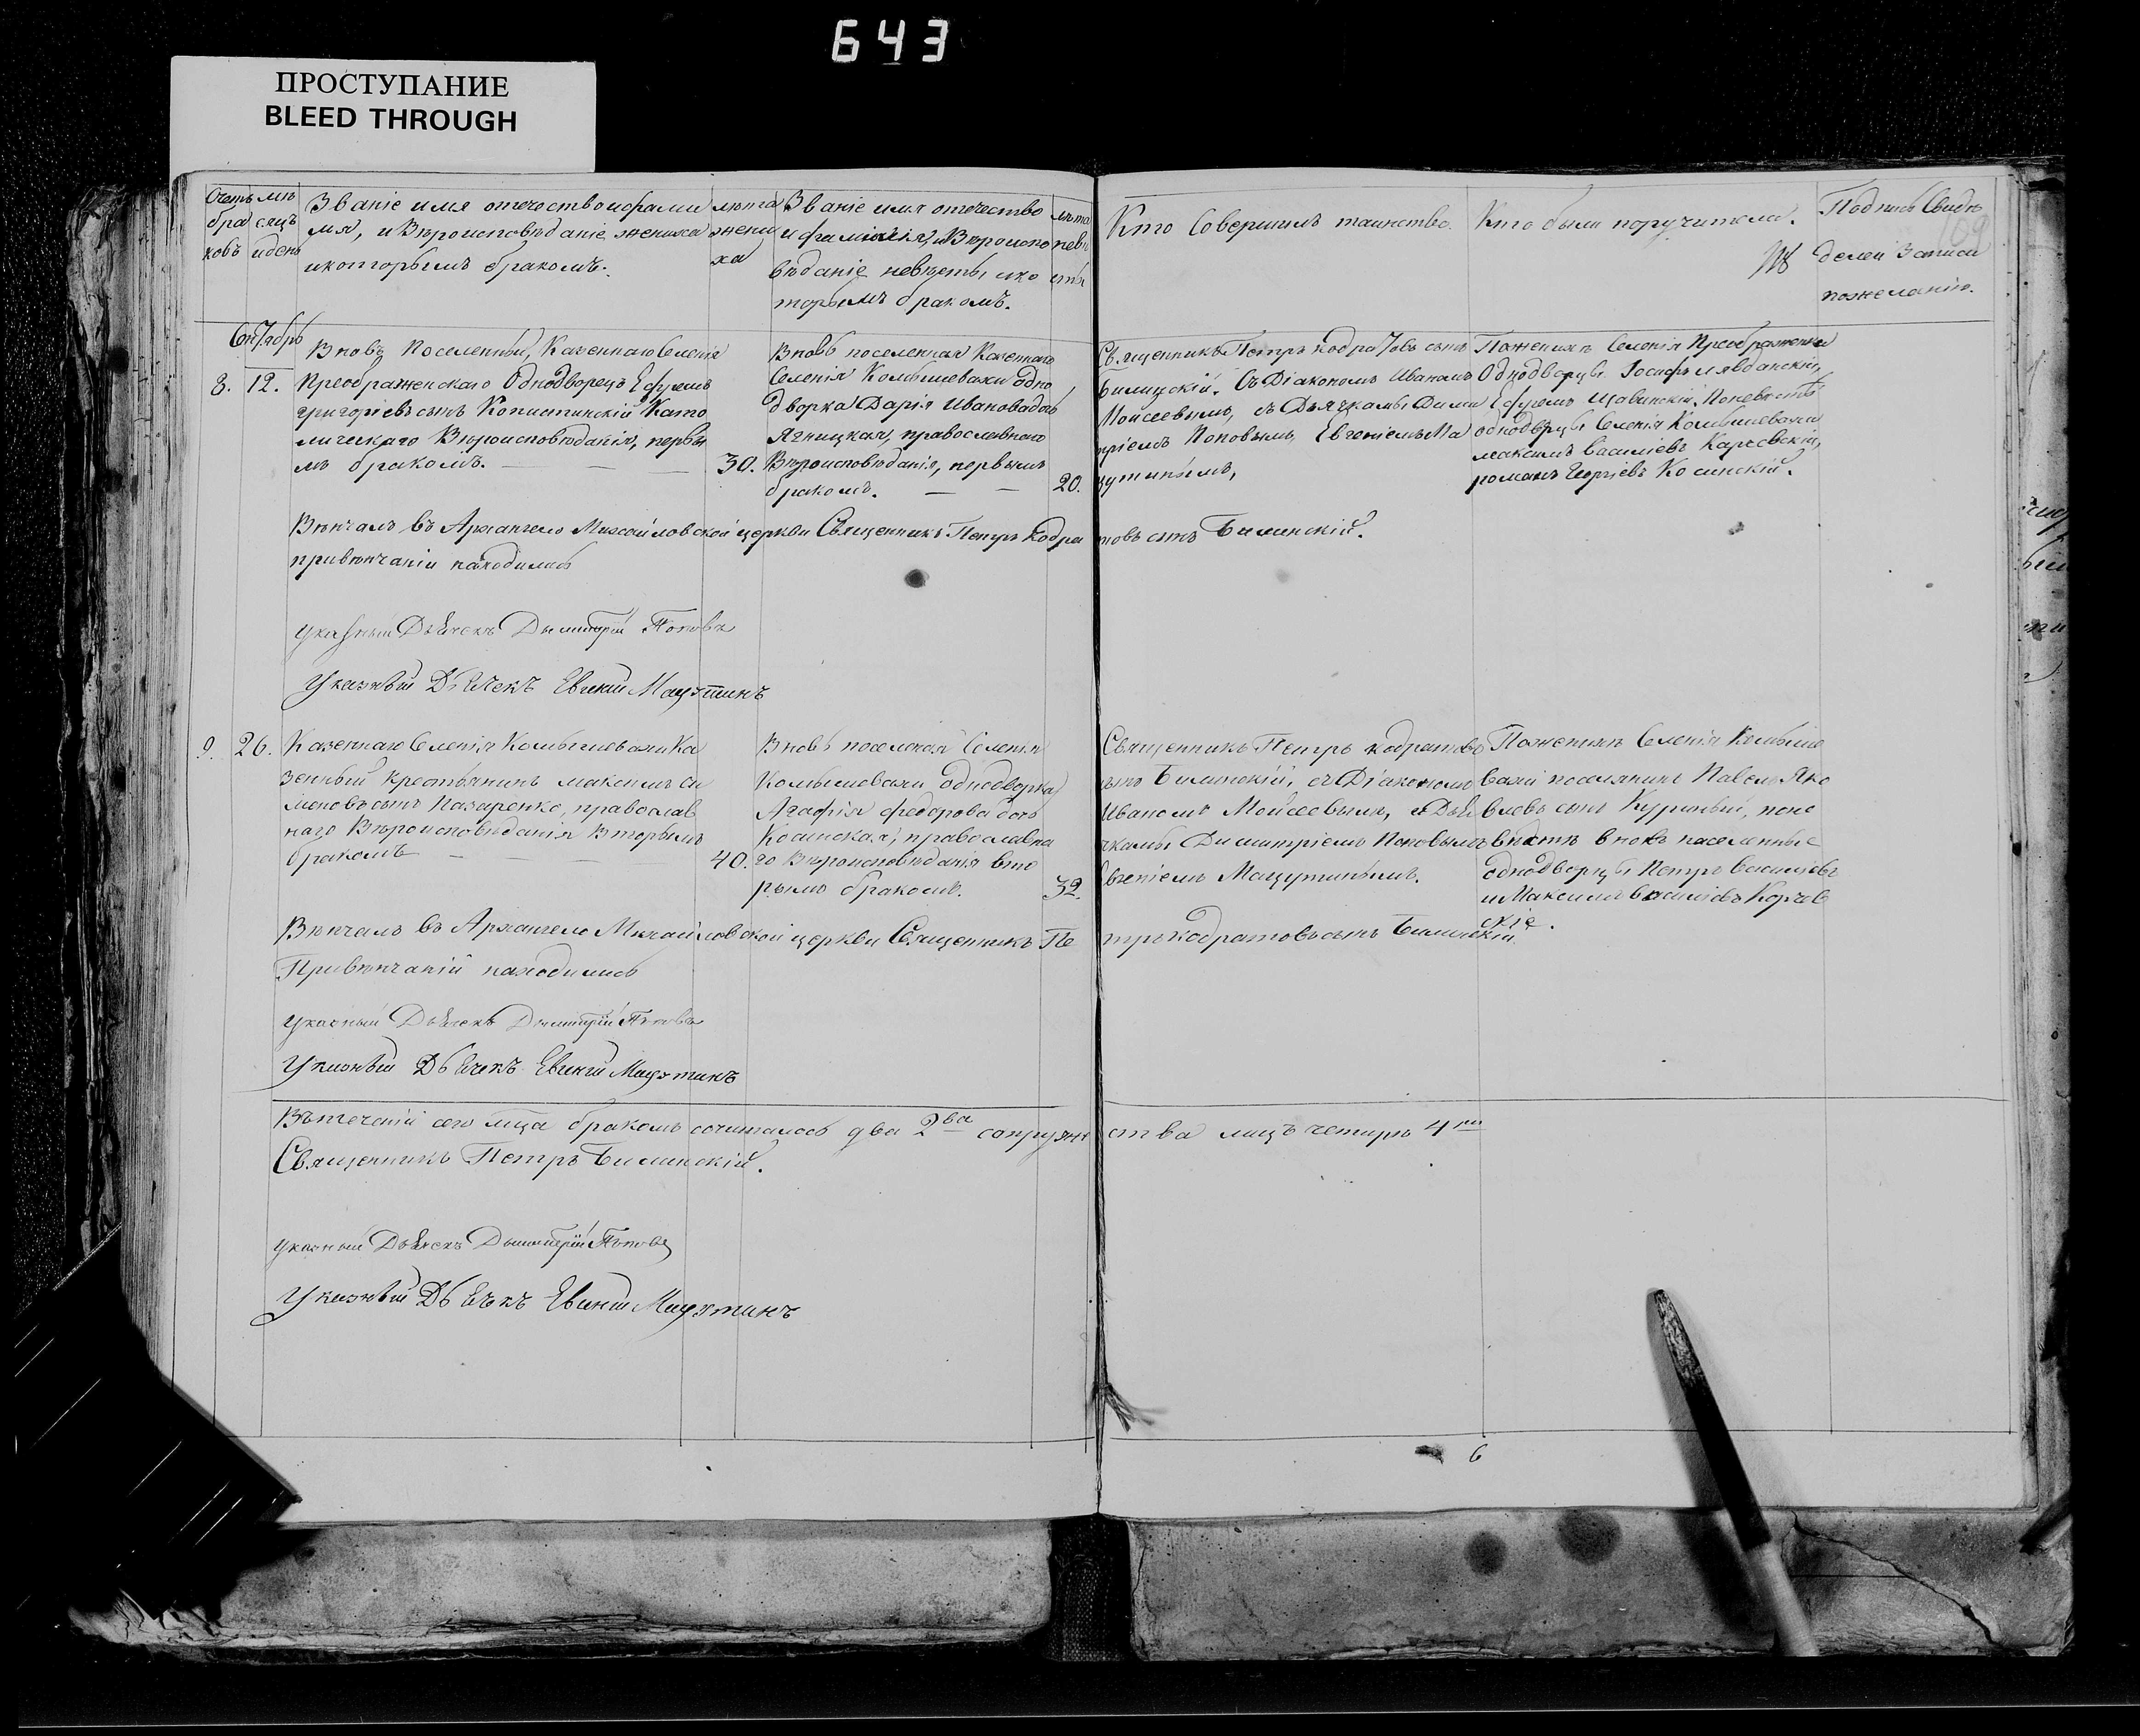 643
ПРОСТУПАНИЕ
BLEED THROUGH
Счетъ бра ковъ
мѣ сяцъ идень
Званіе имя отечество ифами
лия, и Вѣроисповѣданіе жениха
икоторымъ бракомъ.
лѣта жени ха
Званіе имя отечество
и фамилія, и Вѣроиспо
вѣданіе невѣсты ико
торымъ бракомъ.
лѣта невѣ сты
Кто Совершилъ таинство.
Кто были поручители.
Подпись Свидѣ
телей Записи
пожеланію.
109
Октябрь
8. 12.
Вновь Поселенный, Казеннаго Селенія
Преображенскаго Однодворецъ Ефремъ
григоріевъ сынъ Копистинскій Като
лическаго Вѣроисповѣданія, первы
мъ бракомъ.
30.
Вновь поселенная Казеннаго
Селенія Комышевахи одно
дворка Дарія Иванова дочь
Ягницкая, православнаго
Вѣроисповѣданія, первымъ
бракомъ.
20.
Священникъ Петръ кодратовъ сынъ
Билинскій. Съ Діакономъ Иваномъ
Мойсеевымъ, съ Дьячками Дими
тріемъ Поповымъ, Евгеніемъ Ма
цутинымъ,
Поженихъ Селенія Преображенка
Однодворцы Іосифъ
Ефремъ Поневѣстѣ
однодврцы Селенія Комышевахи
максимъ василіевъ Карчевскій,
романъ Георгіевъ Косинскій.
Вѣнчалъ въ Архангело Михайловской церкви Священникъ Петръ кодра товъ сынъ Билинскій.
привѣнчаніи находились
указный Дьячекъ Димитрій Поповъ
Указный Дьячекъ Евгеній Мацутинъ
9. 26.
Казеннаго Селенія Комышевахи Ка
зенный крестьянинъ максимъ си
меновъ сынъ Назаренко, православ
наго Вѣроисповѣданія вторымъ
бракомъ
40.
Вновь поселеная Селенія
Комышевахи однодворка
Агафія федорова дочь
Косинская, православна
го Вѣроисповѣданія вто
рымъ бракомъ.
32.
Священникъ Петръ кодратовъ
сынъ Билинскій, съ Діакономъ
Иваномъ Мойсеевымъ, съ Дья
чками Димитріемъ Поповымъ
Евгеніемъ Мацутинымъ.
Поженихъ Селенія Комыше
вахи поселянинъ Павелъ Яко
влевъ сынъ Куриный, поне
вѣстѣ вновь населенные
однодворцы Петръ василіевъ
и Максимъ василіевъ Корчев
скіе.
Вѣнчалъ въ Архангело Михайловской церкви Священникъ Пе тръ кодратовъ сынъ Билинскій
Привѣнчаній находились
указный Дьячекъ Димитрій Поповъ
Указный Дьячекъ Евгеній Мацутинъ
Втеченій сего мца бракомъ сочиталось два 2ва супруже ства лицъ четыри 4ри
Священникъ Петръ Билинскій.
указный Дьячекъ Димитрій Поповъ
Указный Дьячекъ Евгеній Мацутинъ
6